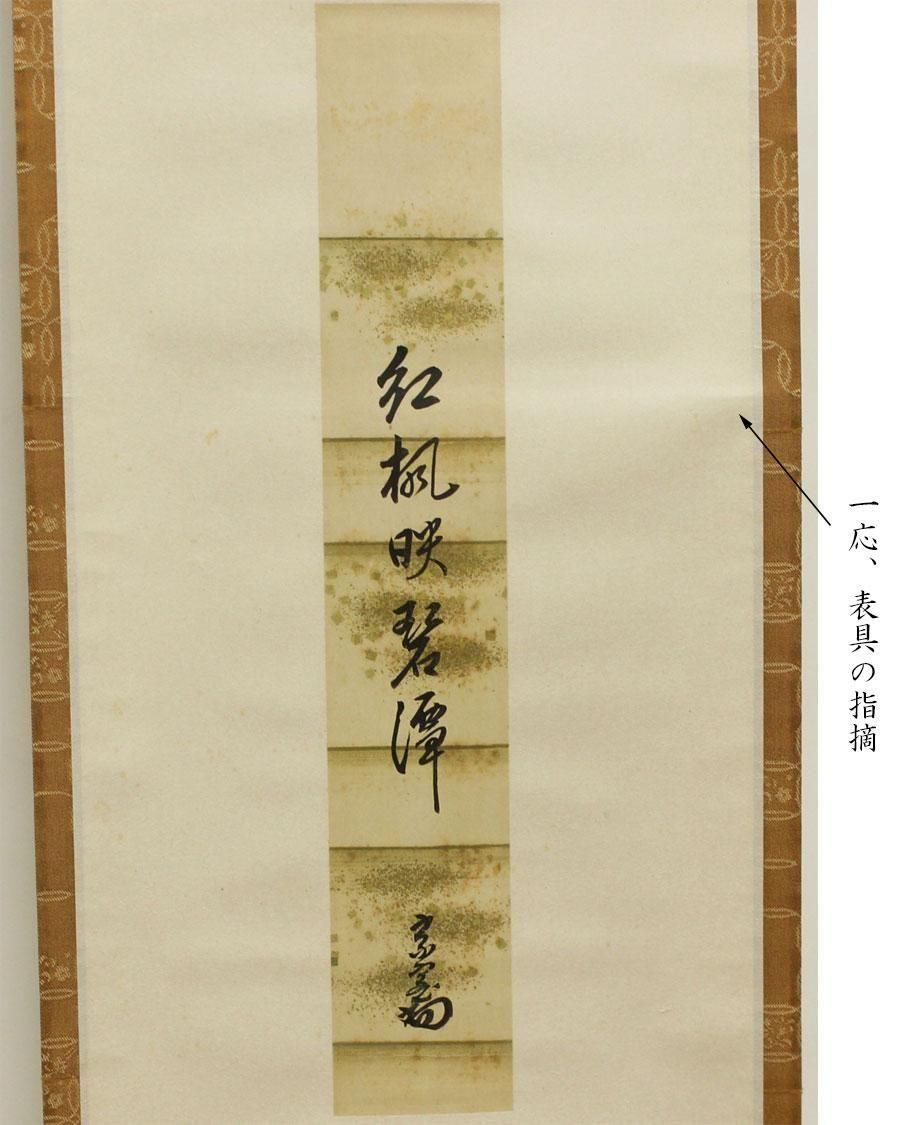 紅楓映碧潭
一応、表具の指摘